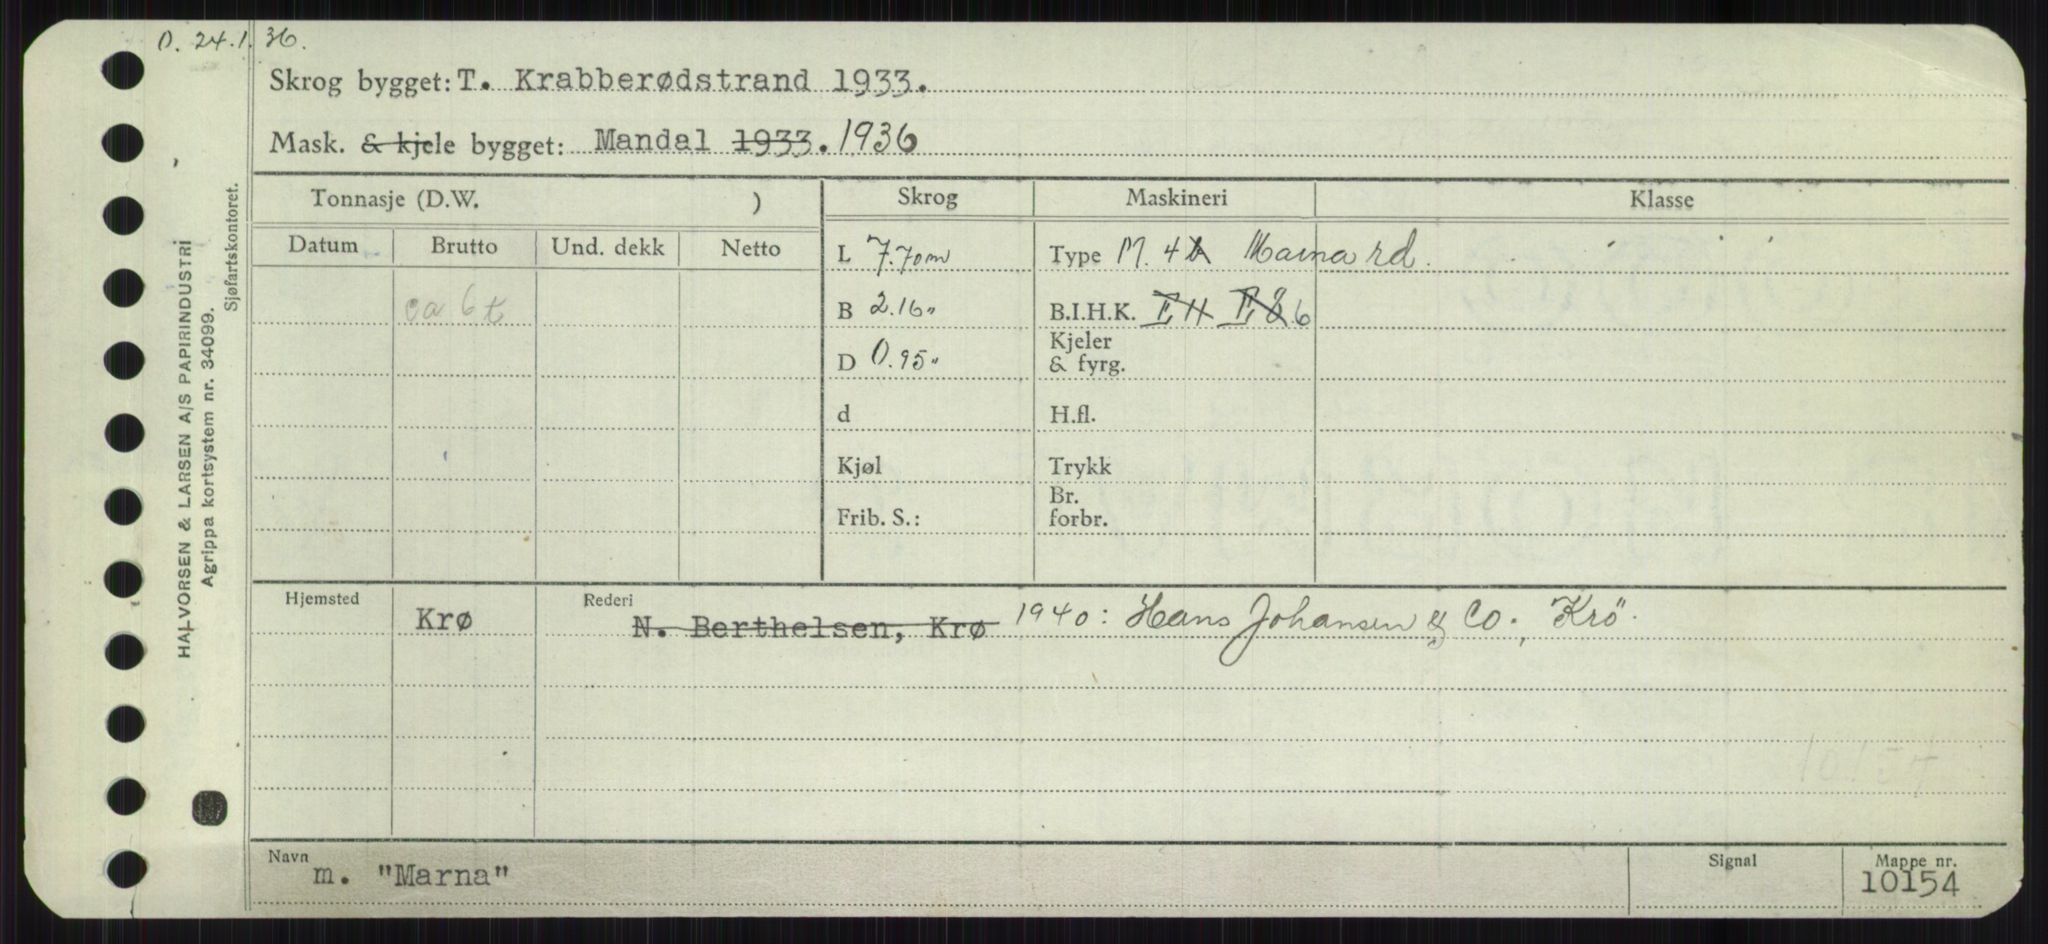 O. 24.1.36.
Skrog bygget: T. Krabberødstrand 1933.
Mask. & kjele bygget: Mandal 1933. 1936
Tonnasje (D.W. )
Skrog
Maskineri
Klasse
Datum
Brutto
Und. dekk
Netto
L 7.70 m
Type M. 4
B 2.16 "
B.I.H.K. 6
ca 6 t
D 0.95 "
Kjeler
& fyrg.
d
H.fl.
Kjøl
Trykk
Frib. S.:
Br.
forbr.
Hjemsted
Krø
Rederi
N. Berthelsen, Krø 1940: Hans Johansen & Co., Krö.
10154
Navn
m. "Marna"
Signal
Mappe nr.
10154
HALVORSEN & LARSEN A/S PAPIRINDUSTRI
Agrippa kortsystem nr. 34099.
Sjøfartskontoret.